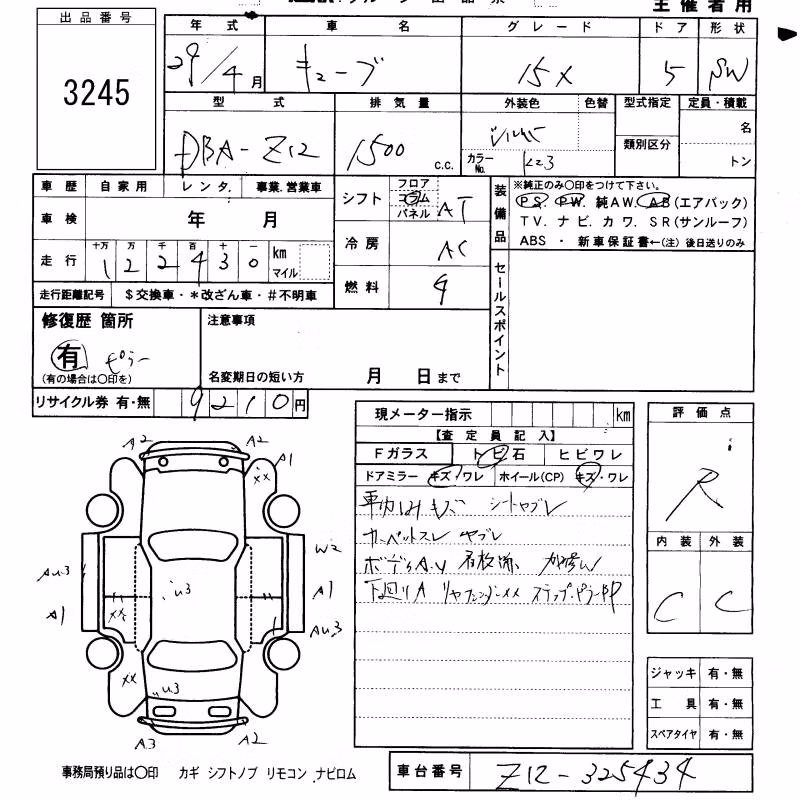 主催者用
出品番号
3245
年式 車名 グレード ドア 形状
29/4月 キューブ 15X 5 SW
型式 排気量 外装色 色替 型式指定 定員・積載
DBA-Z12 1500 c.c. シルバー 類別区分 名
カラーNo. K23 トン
車歴 自家用 レンタ. 事業.営業車
車検 年 月
走行 十万 万 千 百 十 一 km マイル
1 2 2 4 3 0
走行距離記号 $交換車・*改ざん車・#不明車
シフト フロア コラム パネル AT
冷房 AC
燃料
装備品 ※純正のみ○印をつけて下さい。
PS PW 純AW. AB(エアバック)
TV. ナビ. カワ. SR(サンルーフ)
ABS ・ 新車保証書←(注) 後日送りのみ
セールスポイント
修復歴 箇所
有 ピラー
(有の場合は○印を)
注意事項
名変期日の短い方 月 日まで
リサイクル券 有・無 9210円
現メーター指示 km
【査定員記入】
Fガラス トビ石 ヒビワレ
ドアミラー キズ・ワレ ホイール(CP) キズ・ワレ
シートヤブレ
カーペットスレ ヤブレ
ボディA.U
下回りA
評価点
R
内装 外装
C C
ジャッキ 有・無
工具 有・無
スペアタイヤ 有・無
A2 A2
A1
××
W2
AU3
U3
A1
A1
××
AU3
××
U3
A3 A2
事務局預り品は○印 カギ シフトノブ リモコン ナビロム
車台番号 Z12-325434